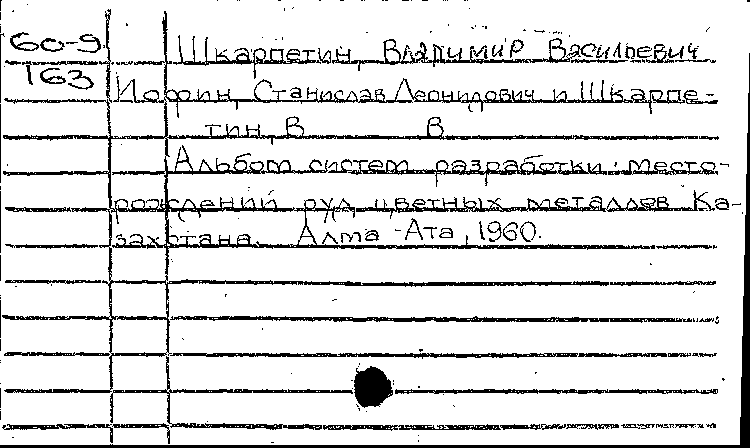 60-9
163
Шкарпетин, Владимир Васильевич
Иофин, Станислав Леонидович и Шкарпе-
тин, В В
Альбом систем разработки место-
рождений руд цветных металлов Ка-
захстана. Алма-Ата, 1960.